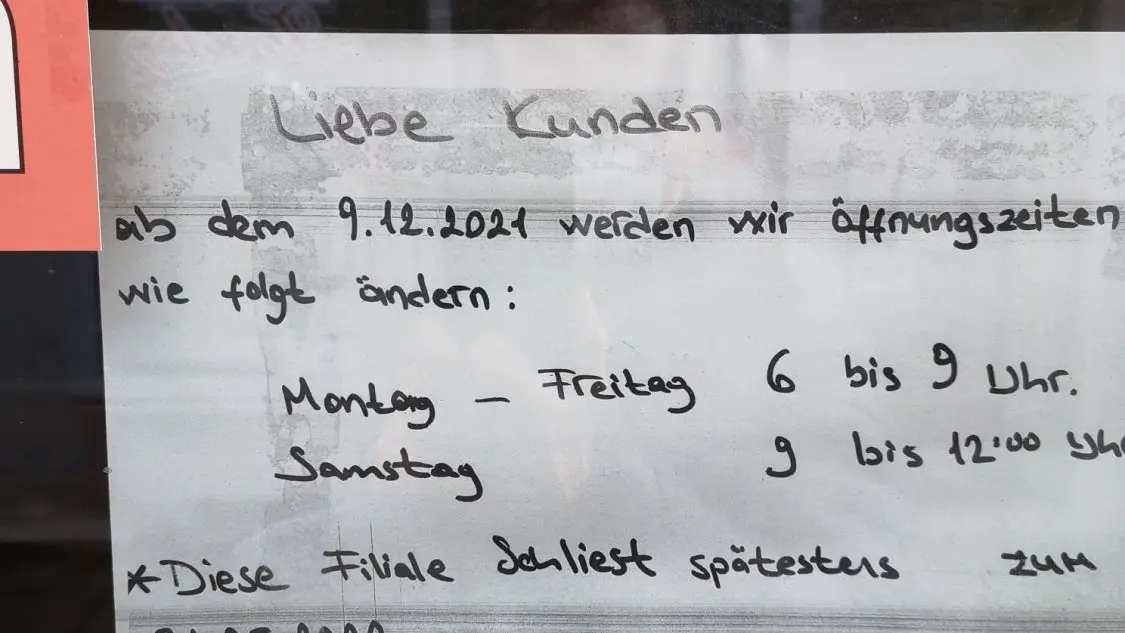 Liebe Kunden
ab dem 9.12.2021 werden wir öffnungszeiten
wie folgt ändern:
Montag – Freitag 6 bis 9 Uhr.
Samstag 9 bis 12:00 Uhr
*Diese Filiale Schliest spätesters zum